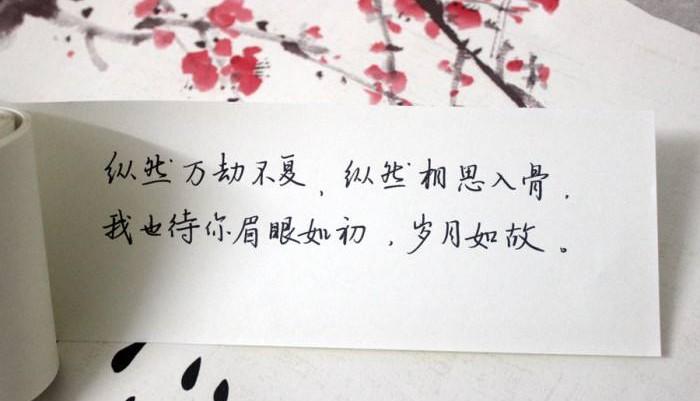 纵然万劫不复，纵然相思入骨，
我也待你眉眼如初，岁月如故。